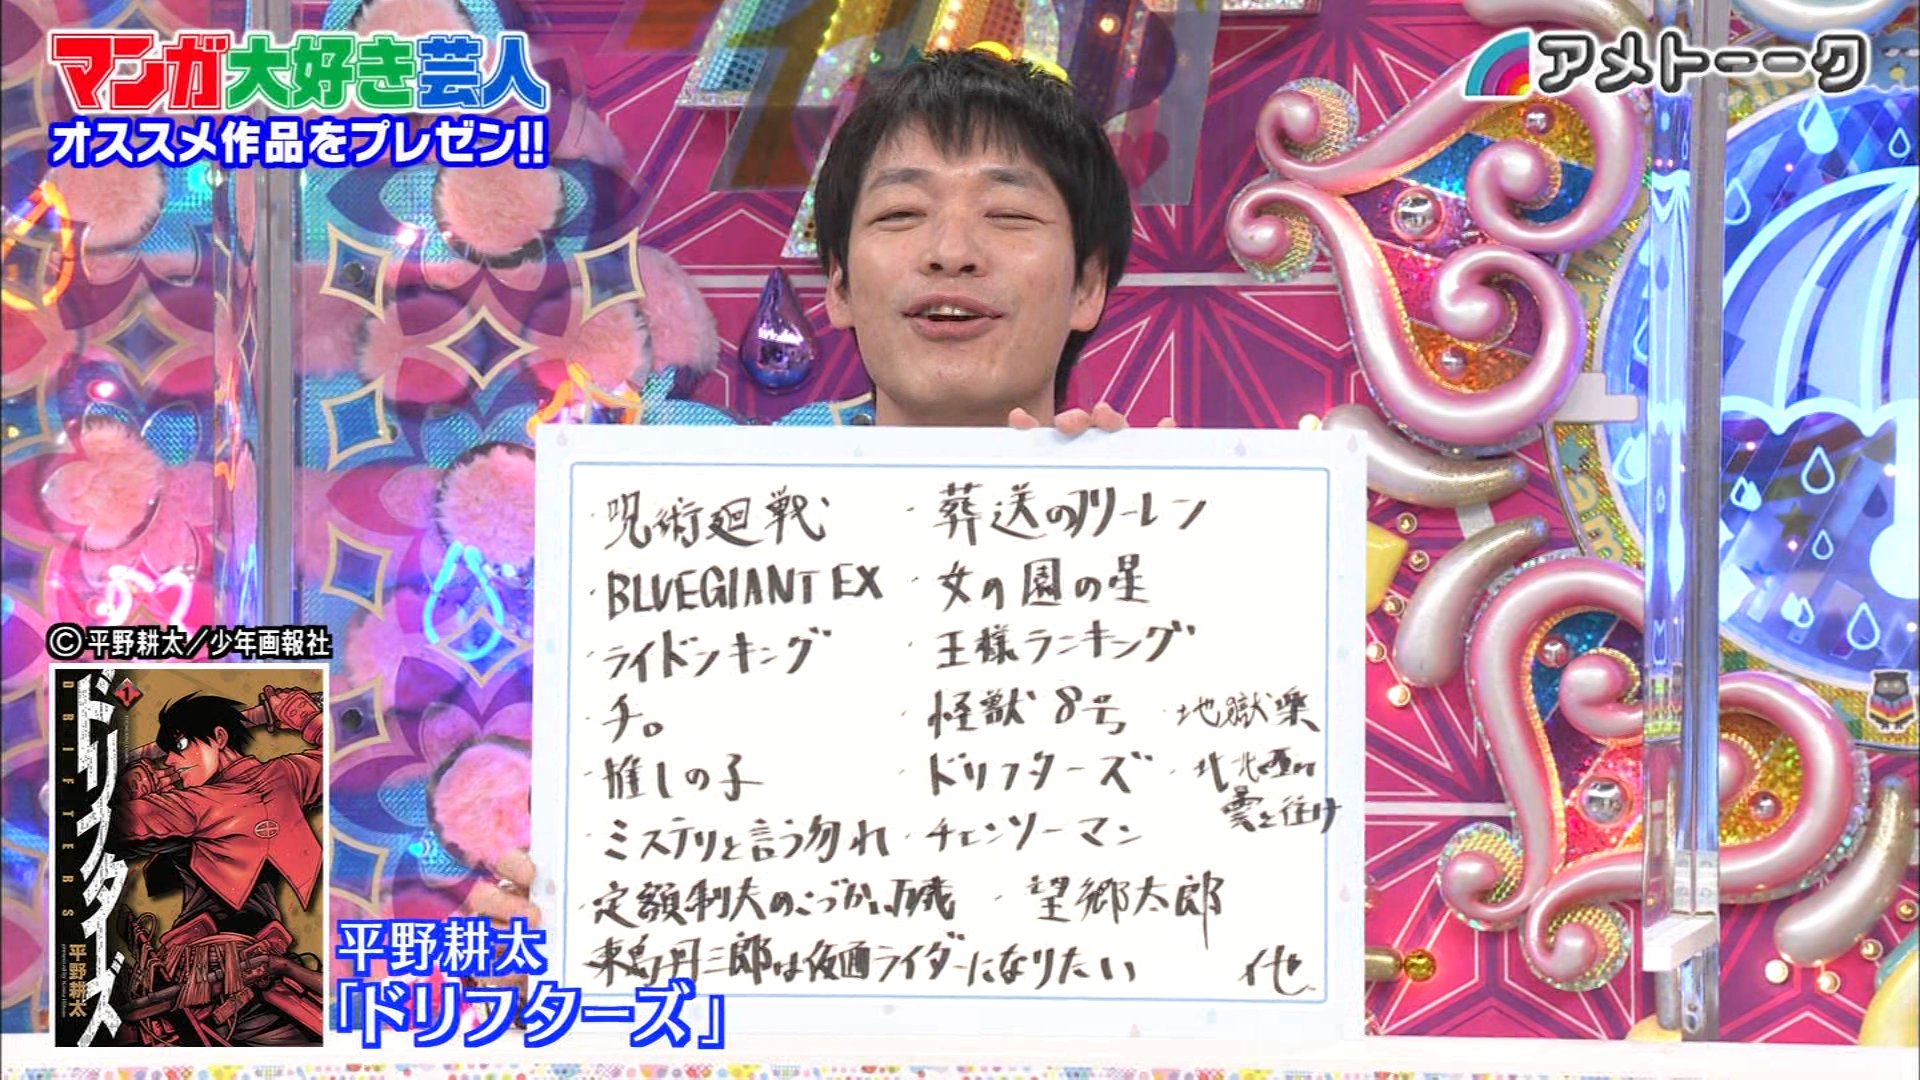 マンガ大好き芸人
オススメ作品をプレゼン!!
アメトーーク
・呪術廻戦
・葬送のフリーレン
・BLUEGIANT EX
・女の園の星
・ライドンキング
・王様ランキング
・チ。
・怪獣8号
・地獄楽
・推しの子
・ドリフターズ
・北北西に
雲と往け
・ミステリと言う勿れ
・チェンソーマン
・定額制夫のこづかい万歳
・望郷太郎
・東島丹三郎は仮面ライダーになりたい
他
©平野耕太/少年画報社
ドリフターズ
1
DRIFTERS
平野耕太
平野耕太
「ドリフターズ」